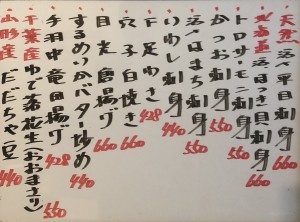 天然 活〆平目刺身 660
北海道産 活ほっき貝刺身 660
トロサーモン刺身 550
かつお刺身 550
活〆はまち刺身 550
いわし刺身
下足わさ 440
穴子白焼き 660
目光唐揚げ 660
するめいかバター炒め 440
手羽中竜田揚げ 428
千葉産 ゆで落花生(おおまさり) 550
山形産 だだちゃ豆 440